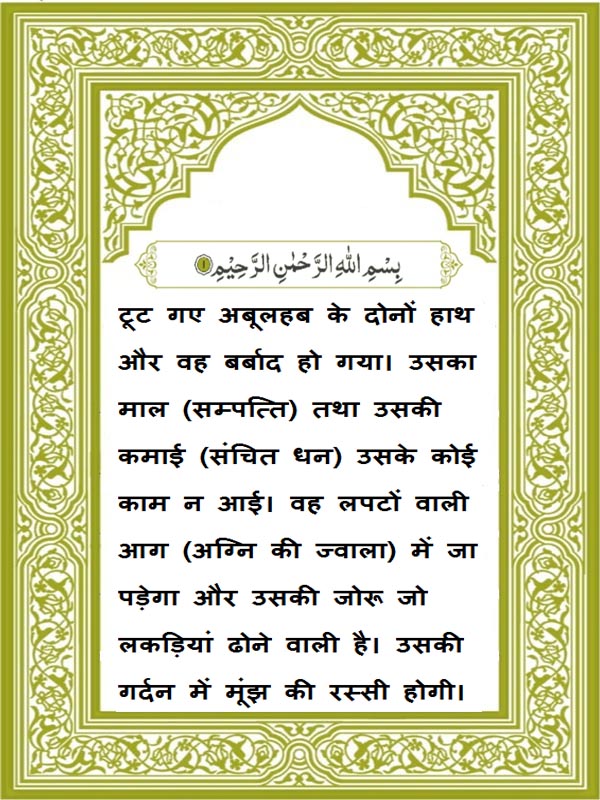 بِسْمِ اللهِ الرَّحْمٰنِ الرَّحِيْمِ ۝۱
टूट गए अबूलहब के दोनों हाथ
और वह बर्बाद हो गया। उसका
माल (सम्पत्ति) तथा उसकी
कमाई (संचित धन) उसके कोई
काम न आई। वह लपटों वाली
आग (अग्नि की ज्वाला) में जा
पड़ेगा और उसकी जोरू जो
लकड़ियां ढोने वाली है। उसकी
गर्दन में मूंझ की रस्सी होगी।